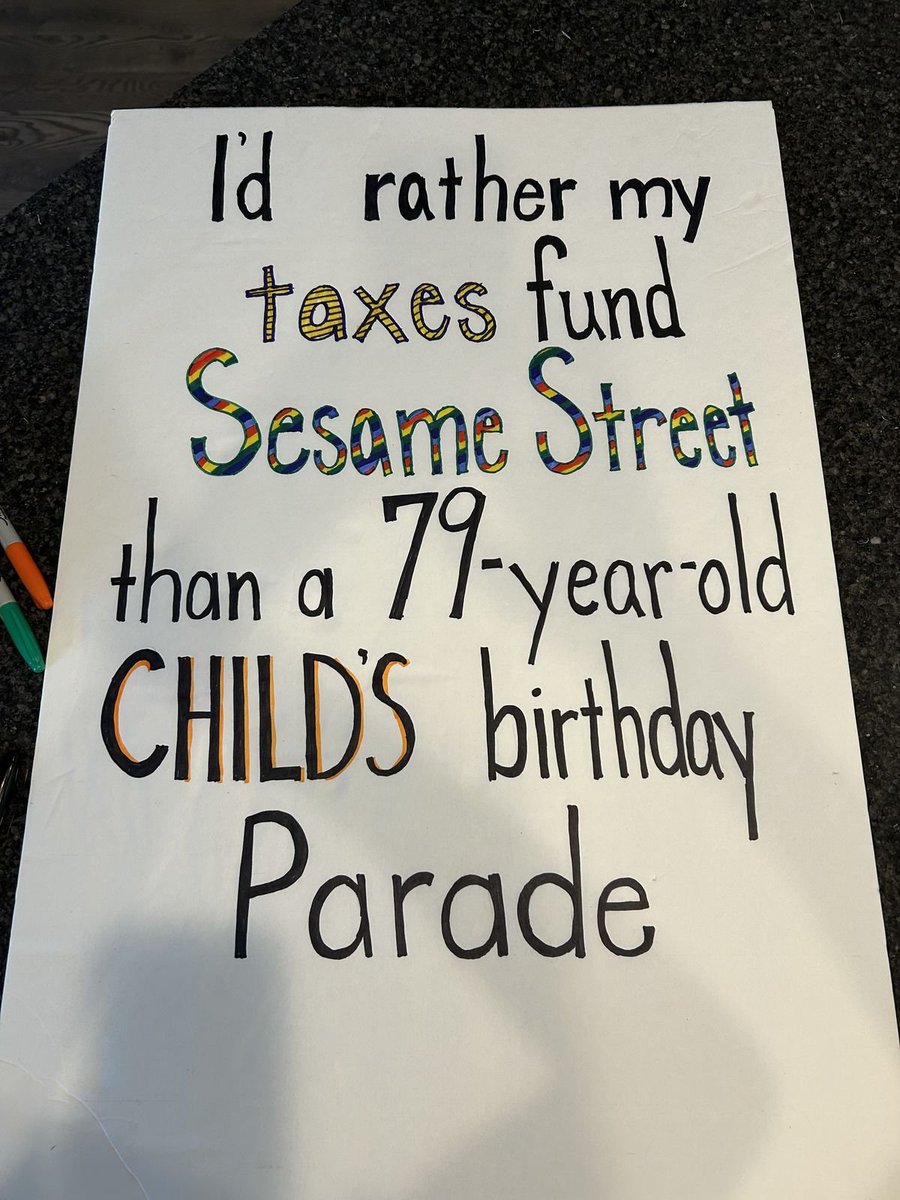 I'd rather my
taxes fund
Sesame Street
than a 79-year-old
CHILD'S birthday
Parade